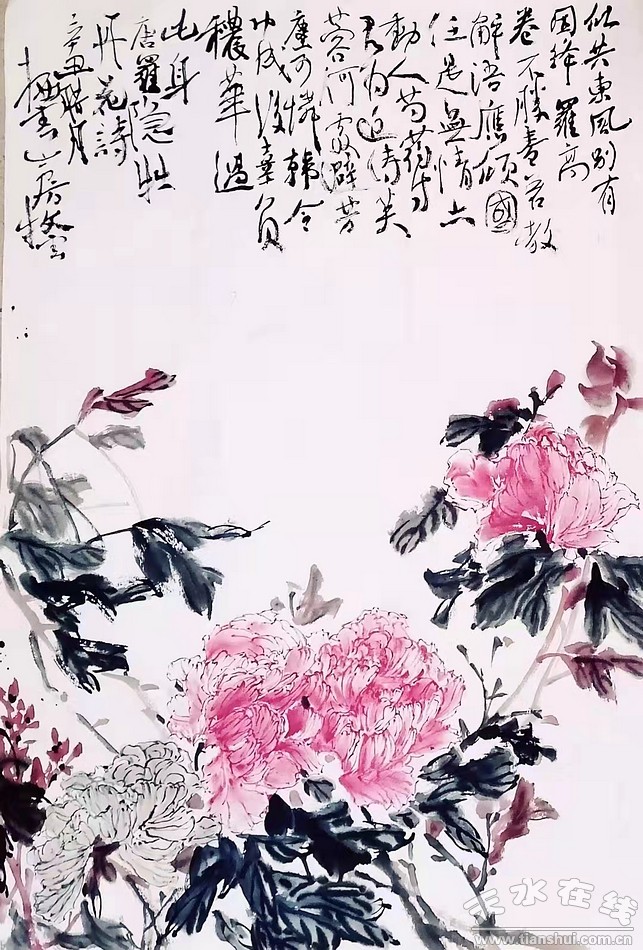 似共東風別有
因絳羅高
卷不勝春若教
解語應傾國
任是無情亦
動人芍藥与
君为近侍芙
蓉何處避芳
塵可憐韓令
功成後辜負
穠華過
此身
唐羅隱牡
丹花詩
辛丑腊月
山房
天水在线
www.tianshui.com.cn